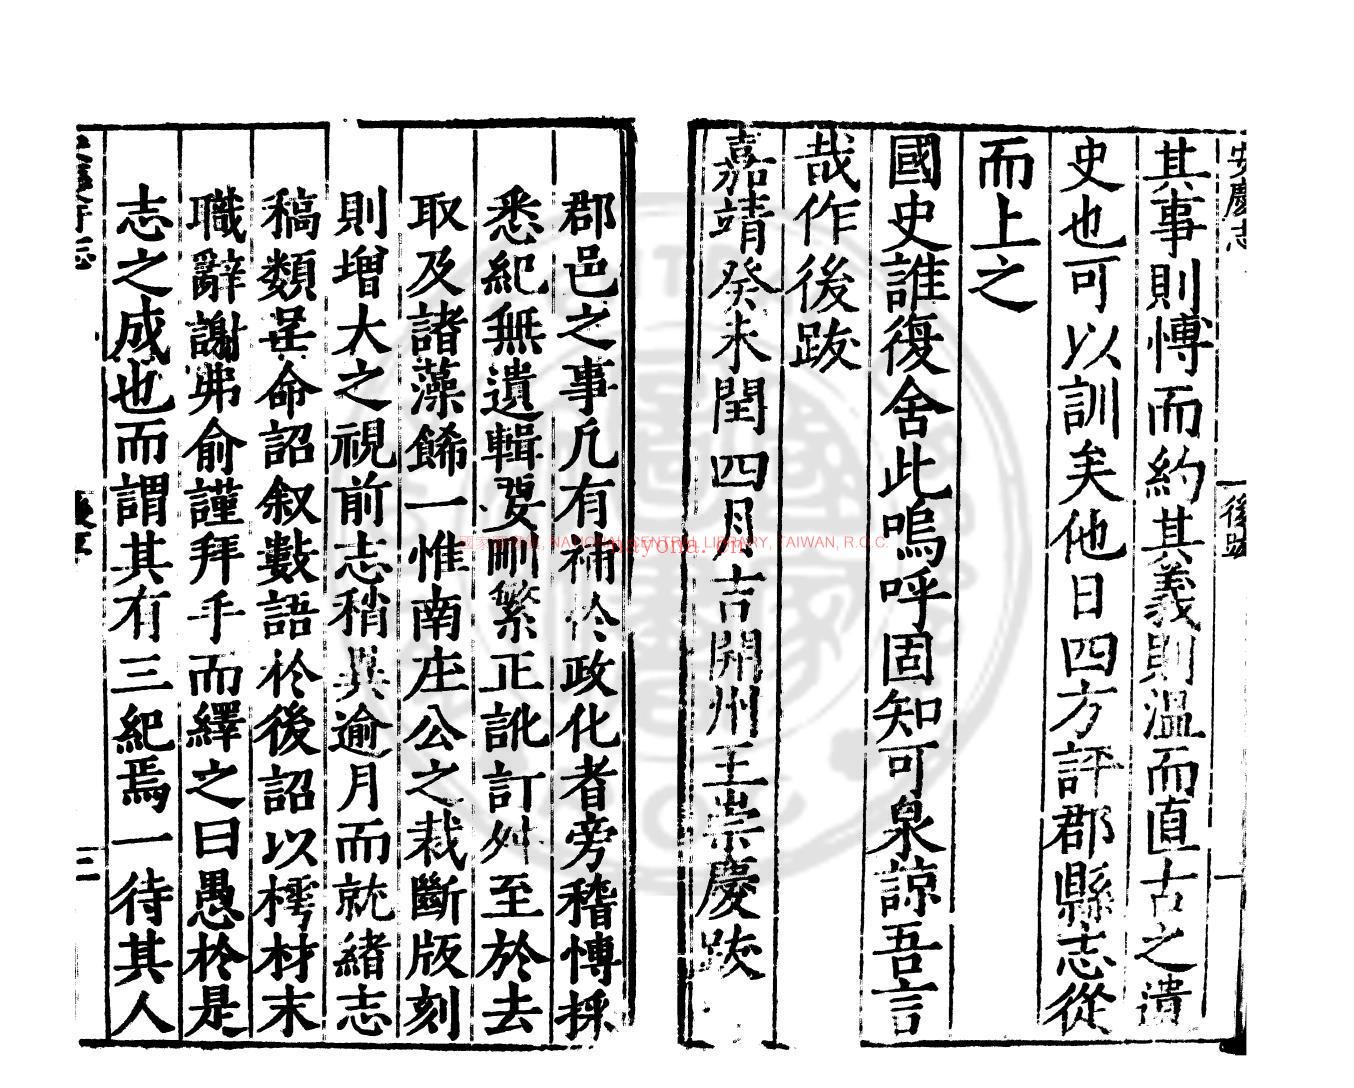 安慶志
後跋
一
其事則博而約其義則溫而直古之遺
史也可以訓矣他日四方評郡縣志從
而上之
國史誰復舍此嗚呼固知可泉諒吾言
哉作後跋
嘉靖癸未閏四月吉開州王崇慶跋
郡邑之事凡有補於政化者旁稽博採
悉紀無遺輯要刪繁正訛訂舛至於去
取及諸藻餙一惟南庄公之裁斷版刻
則增大之視前志稍異逾月而就緒志
稿類呈命詔叙數語於後詔以樗材末
職辭謝弗俞謹拜手而繹之曰愚於是
志之成也而謂其有三紀焉一待其人
三
國家圖書館, NATIONAL CENTRAL LIBRARY, TAIWAN, R.O.C.